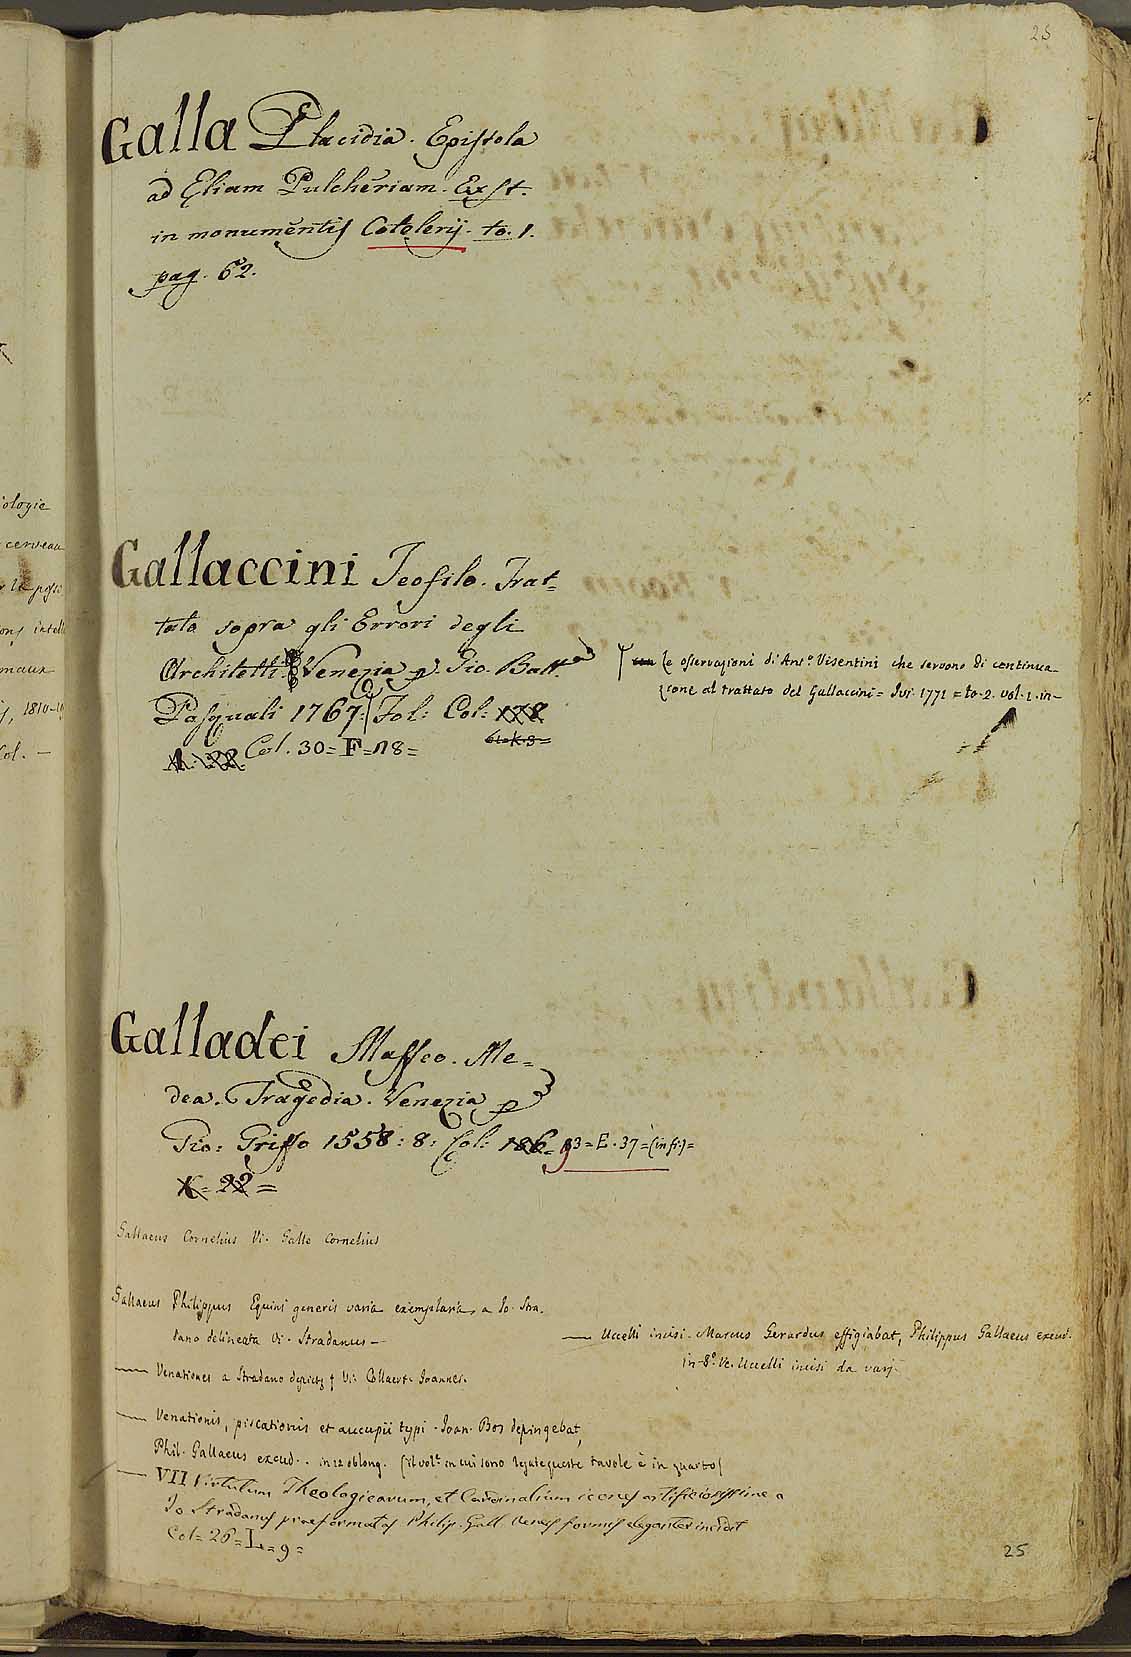 25
Galla Placidia. Epistola
ad Eliam Pulcheriam. Exst.
in monumentis Cotelerij. to. 1.
pag. 62.
Gallaccini Teofilo. Trat=
tato sopra gli Errori degli
Architetti. Venezia p Gio. Batt.a
Pasquali 1767. Fol: Col: 178
Col. 30 = F = n8 =
Le osservazioni di Ant.o Visentini che servono di continua
zione al trattato del Gallaccini = Ivi 1771 = to. 2. vol. 1. in-
Galladei Maffeo. Me=
dea. Tragedia. Venezia p
Gio: Griffo 1558: 8: Col: 186 = 93 = E. 37 = (in fi:) =
K = 22 =
Gallaeus Cornelius Vi. Galle Cornelius
Gallaeus Philippus Equini generis varia exemplaria, a Jo. Stra.
dano delineata Vi. Stradanus —
— Uccelli incisi. Marcus Gerardus effigiabat, Philippus Gallaeus excud.
in-8.o Ve. Uccelli incisi da varj.
— Venationes a Stradano Vi: Collaert. Joannes.
— Venationis, piscationis et aucupii typi. Joan. Bos depingebat,
Phil. Gallaeus excud. . in 12 oblong. (il vol.e in cui sono legate queste tavole è in quarto)
— VII Virtutum Theologicarum, et Cardinalium icones artificiosissime a
Jo Stradano praeformatas Philip. Gall. aeneis formis eleganter incidit
Col = 26 = L = 9 =
25
ologie
cerveau
1810-
Col. —